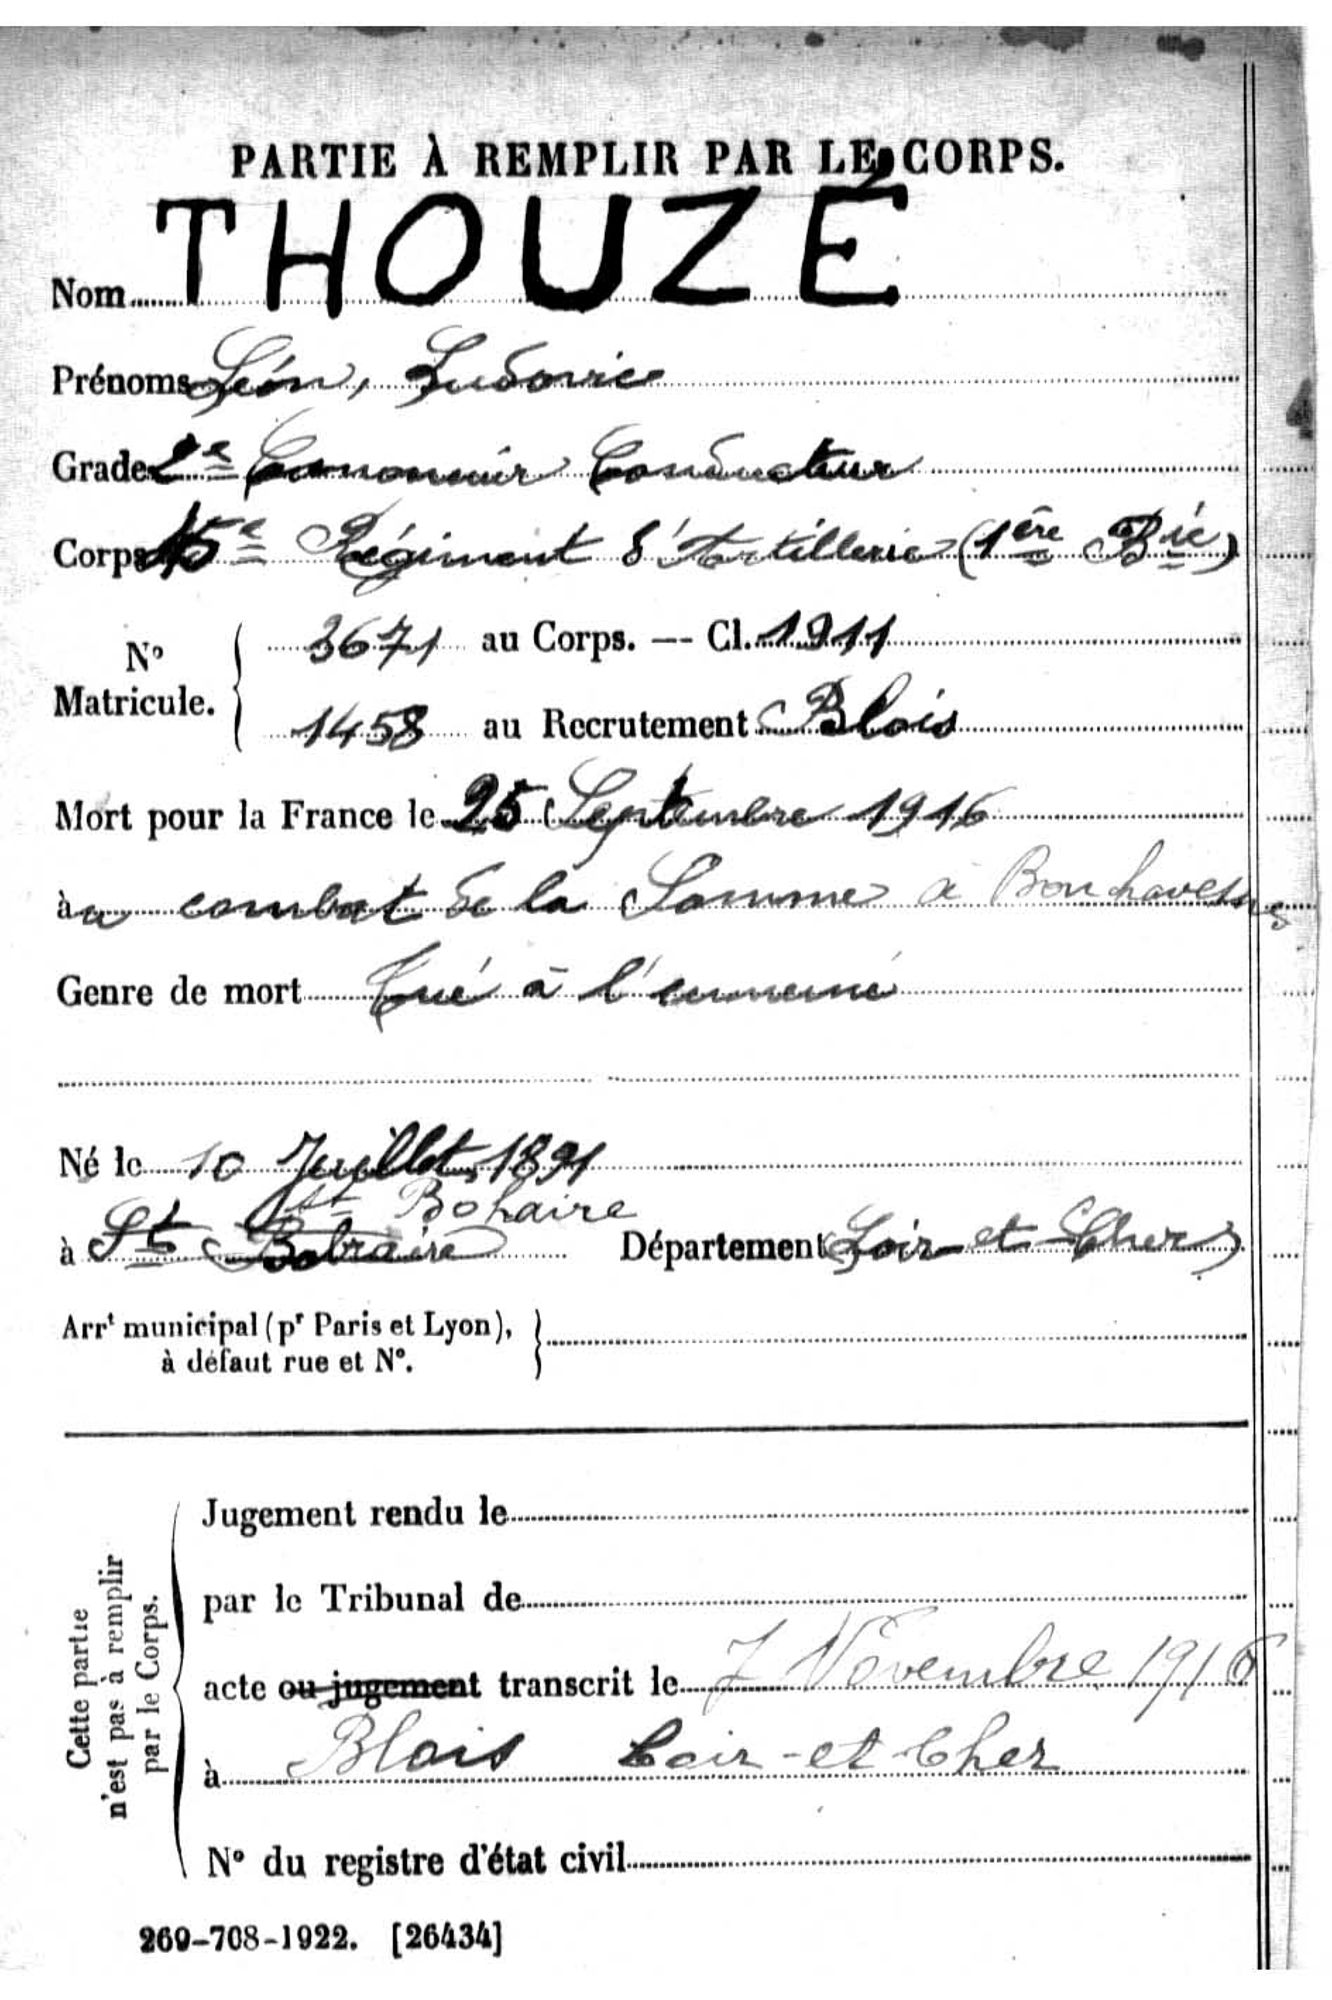 PARTIE À REMPLIR PAR LE CORPS.
Nom THOUZÉ
Prénoms Léon, Ludovic
Grade 2e Canonnier Conducteur
Corps 45e Régiment d'Artillerie (1ère Bie)
No Matricule. { 3671 au Corps. — Cl. 1911
1458 au Recrutement Blois
Mort pour la France le 25 Septembre 1916
àu combat de la Somme à Bouchavesnes
Genre de mort Tué à l'ennemi
Né le 10 Juillet 1891
St Bohaire
à St Département Loir-et-Cher
Arrt municipal (pr Paris et Lyon), }
à défaut rue et No.
Cette partie n'est pas à remplir par le Corps.
Jugement rendu le
par le Tribunal de
acte ou jugement transcrit le 7 Novembre 1916
à Blois Loir-et-Cher
No du registre d'état civil
269-708-1922. [26434]